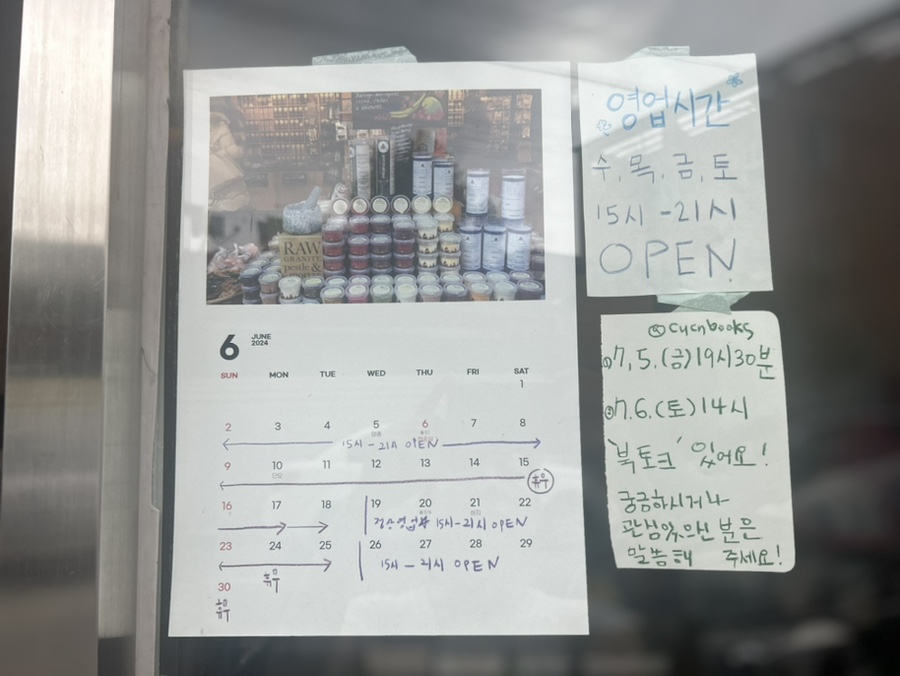 RAW
GRANITE
pestle &
6 JUNE
2024
SUN MON TUE WED THU FRI SAT
1
2 3 4 5 6 7 8
15시 - 21시 OPEN
9 10 11 12 13 14 15
단오
휴무
16 17 18 19 20 21 22
정상영업 15시-21시 OPEN
23 24 25 26 27 28 29
15시 - 21시 OPEN
휴무
30
휴무
영업시간
수, 목, 금, 토
15시 - 21시
OPEN!
7, 5. (금) 19시 30분
7. 6. (토) 14시
'북토크' 있어요!
궁금하시거나
관심있으신 분은
말씀해 주세요!